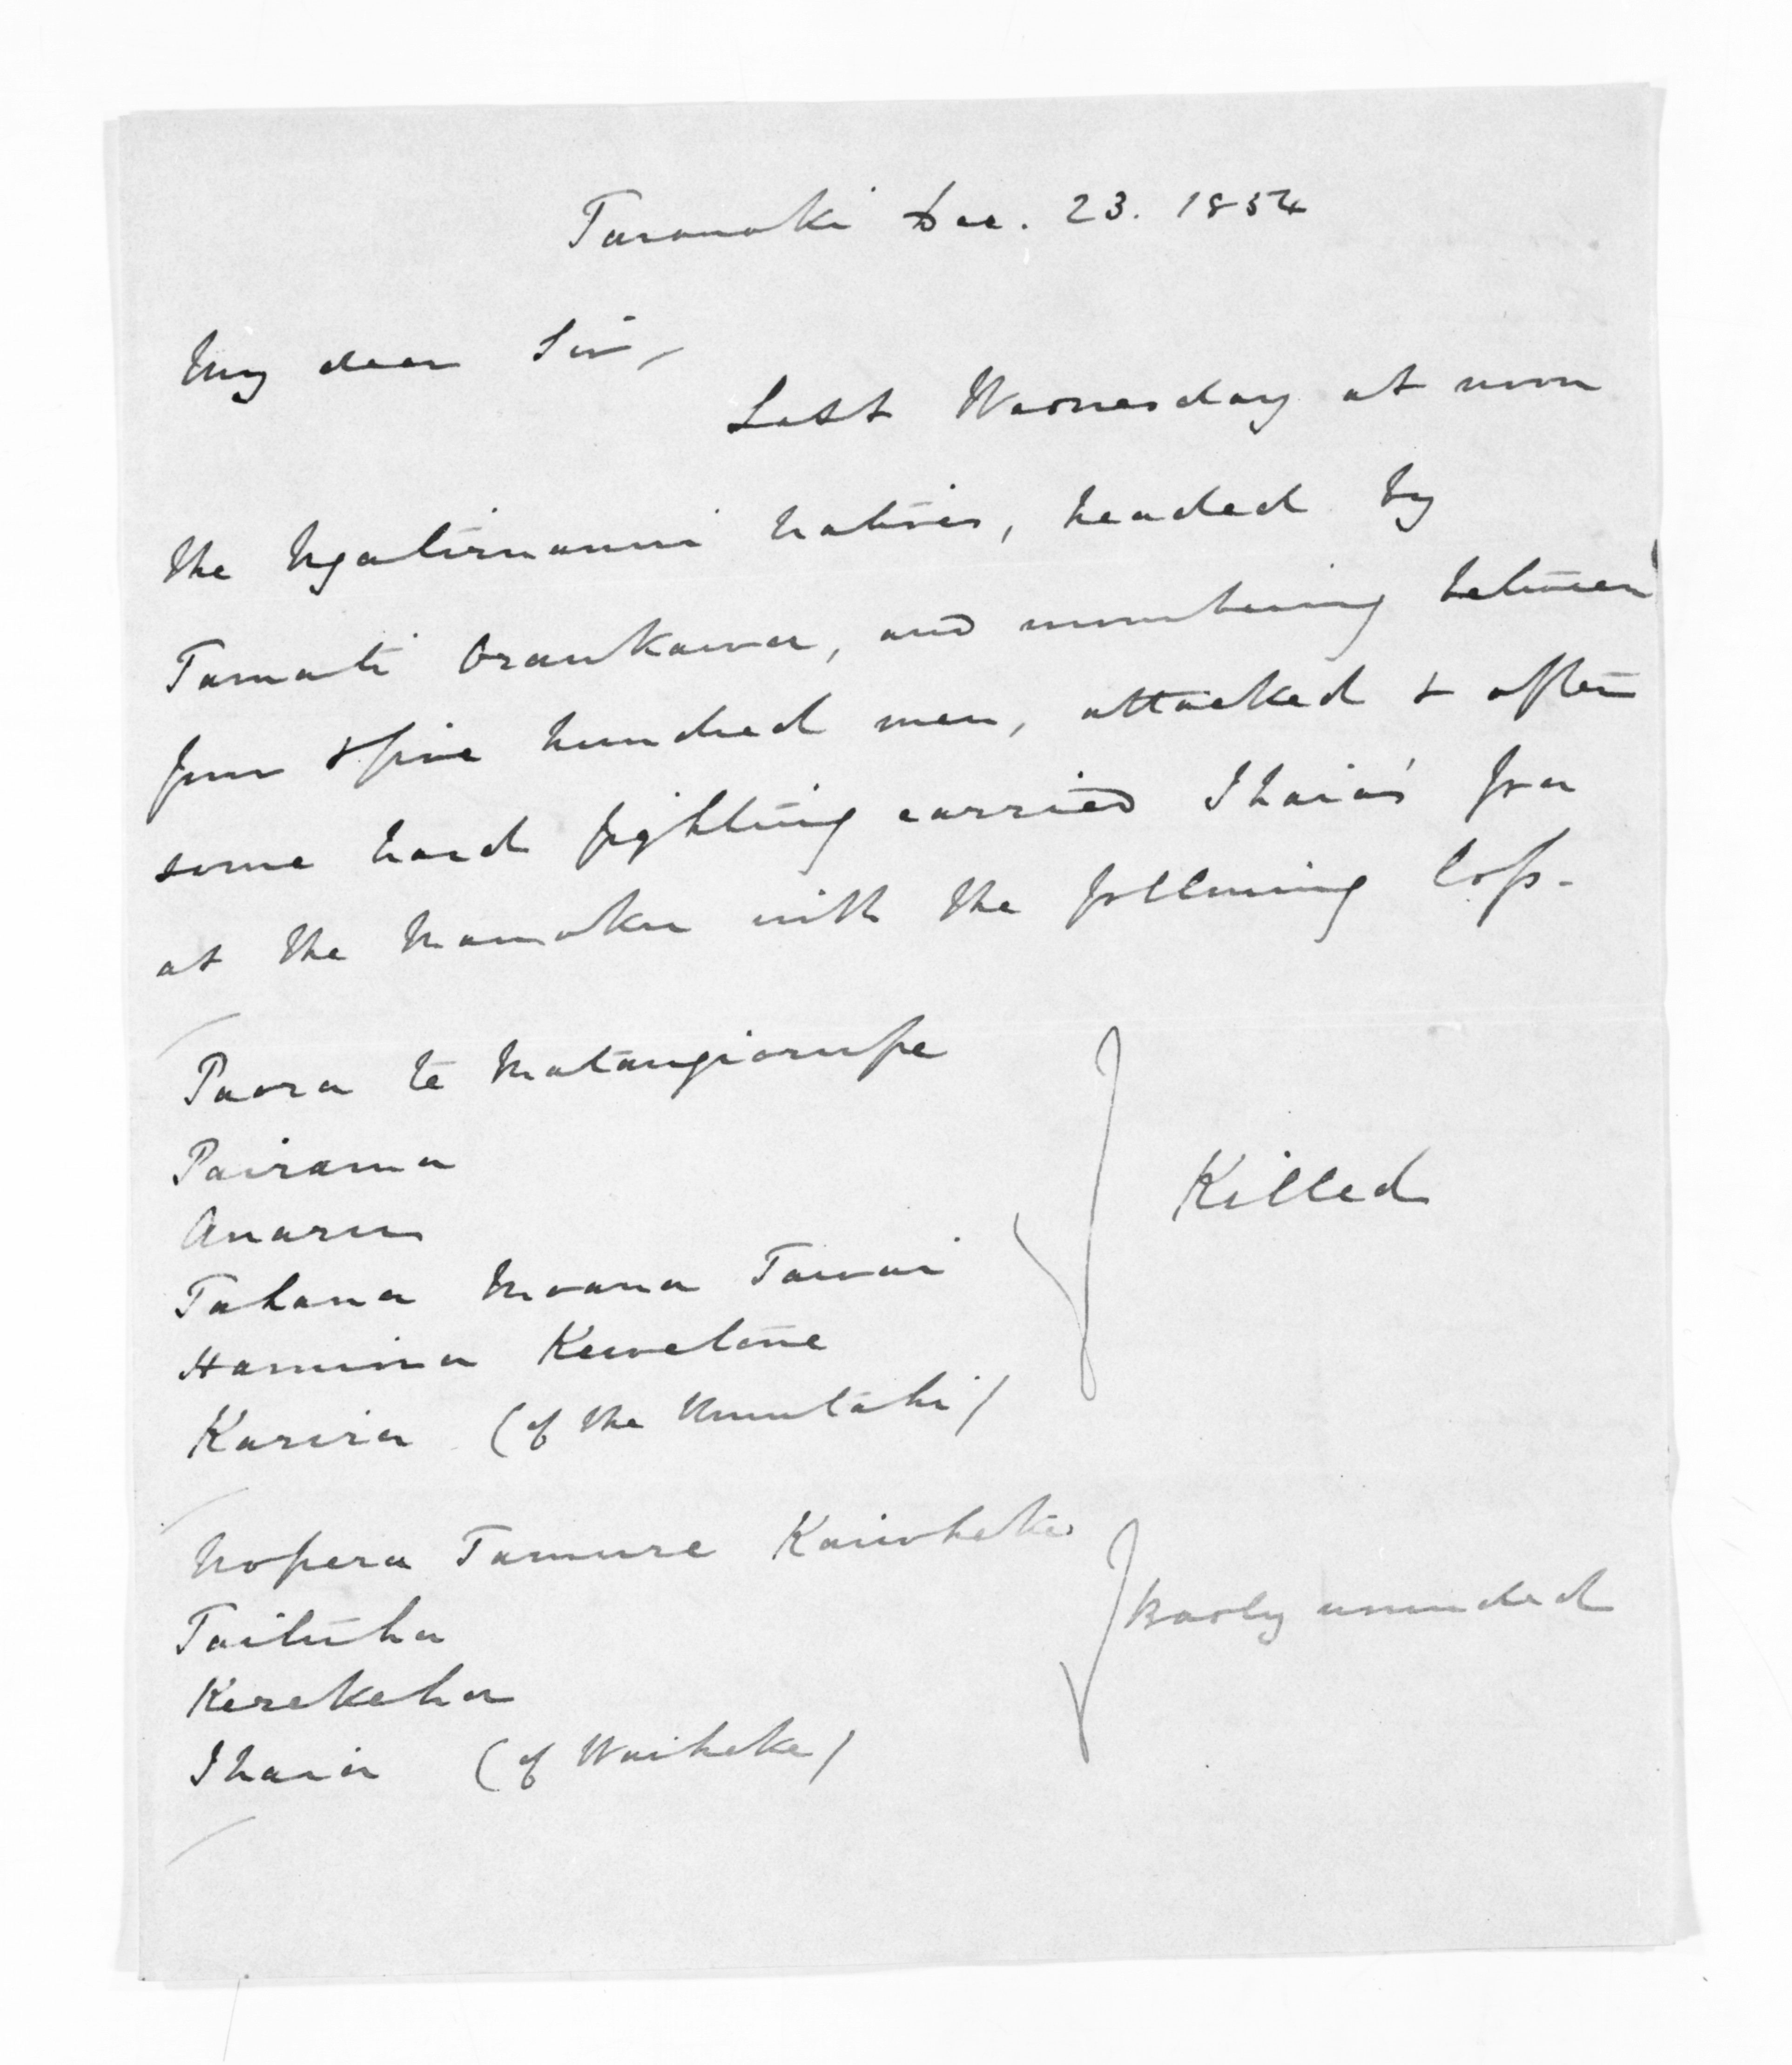 Taranaki Dec. 23. 1854
My dear Sir,
Last Wednesday at noon
the Ngatiruanui natives, headed by
Tamati Oraukawa, and numbering between
four & five hundred men, attacked & after
some hard fighting carried Ihaia's pa
at the Mamaku with the following loss.
Paora te Matangiorupe
Pairama
Anaru
Tahana Moana Tawai
Hamiora Kewetone
Karira (of the Numutahi)
Killed
Nopera Tamure Kaiwheke
Taituha
Kerekeha
Ihaia (of Waiheke)
Badly wounded